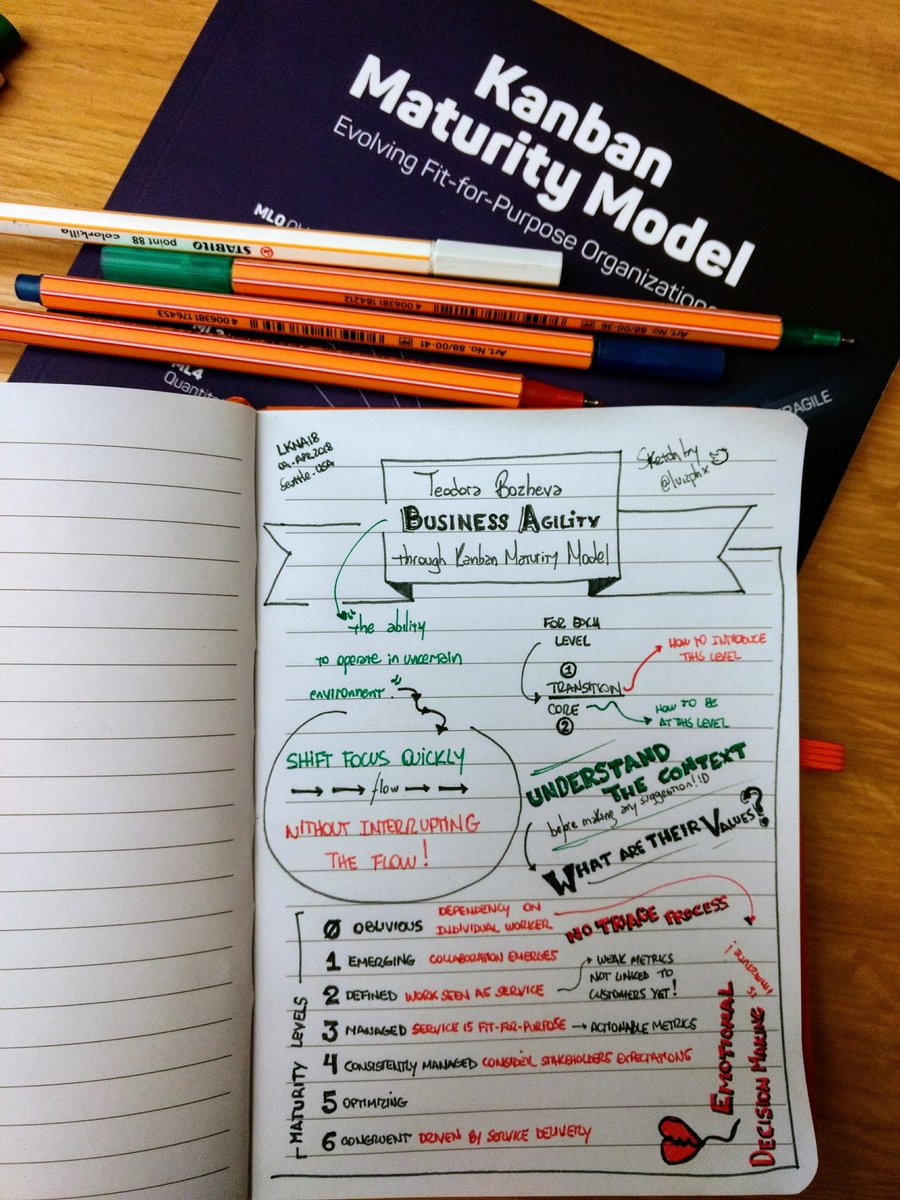 Kanban
Maturity Model
Evolving Fit-for-Purpose Organizations
ML0
STABILO point 88 colorkilla
Art. No. 88/00-36 4 006381 184212
Art. No. 88/00-41 4 006381 176453
ML4
Quantit
FRAGILE
LKNA18
04.APR.2018
Seattle-USA
Sketch by
@luizphx
Teodora Bozheva
BUSINESS AGILITY
through Kanban Maturity Model
"the ability
to operate in uncertain
environment."
SHIFT FOCUS QUICKLY
flow
WITHOUT INTERRUPTING
THE FLOW!
FOR EACH
LEVEL
1
TRANSITION
CORE
2
HOW TO INTRODUCE
THIS LEVEL
HOW TO BE
AT THIS LEVEL
UNDERSTAND
THE CONTEXT
before making any suggestion! :D
WHAT ARE THEIR VALUES?
MATURITY LEVELS
0 OBLIVIOUS DEPENDENCY ON
INDIVIDUAL WORKER
NO TRIAGE PROCESS
1 EMERGING COLLABORATION EMERGES
2 DEFINED WORK SEEN AS SERVICE
WEAK METRICS
NOT LINKED TO
CUSTOMERS YET!
3 MANAGED SERVICE IS FIT-FOR-PURPOSE ACTIONABLE METRICS
4 CONSISTENTLY MANAGED CONSIDER STAKEHOLDERS EXPECTATIONS
5 OPTIMIZING
6 CONGRUENT DRIVEN BY SERVICE DELIVERY
EMOTIONAL
DECISION MAKING
IS IMMATURE!